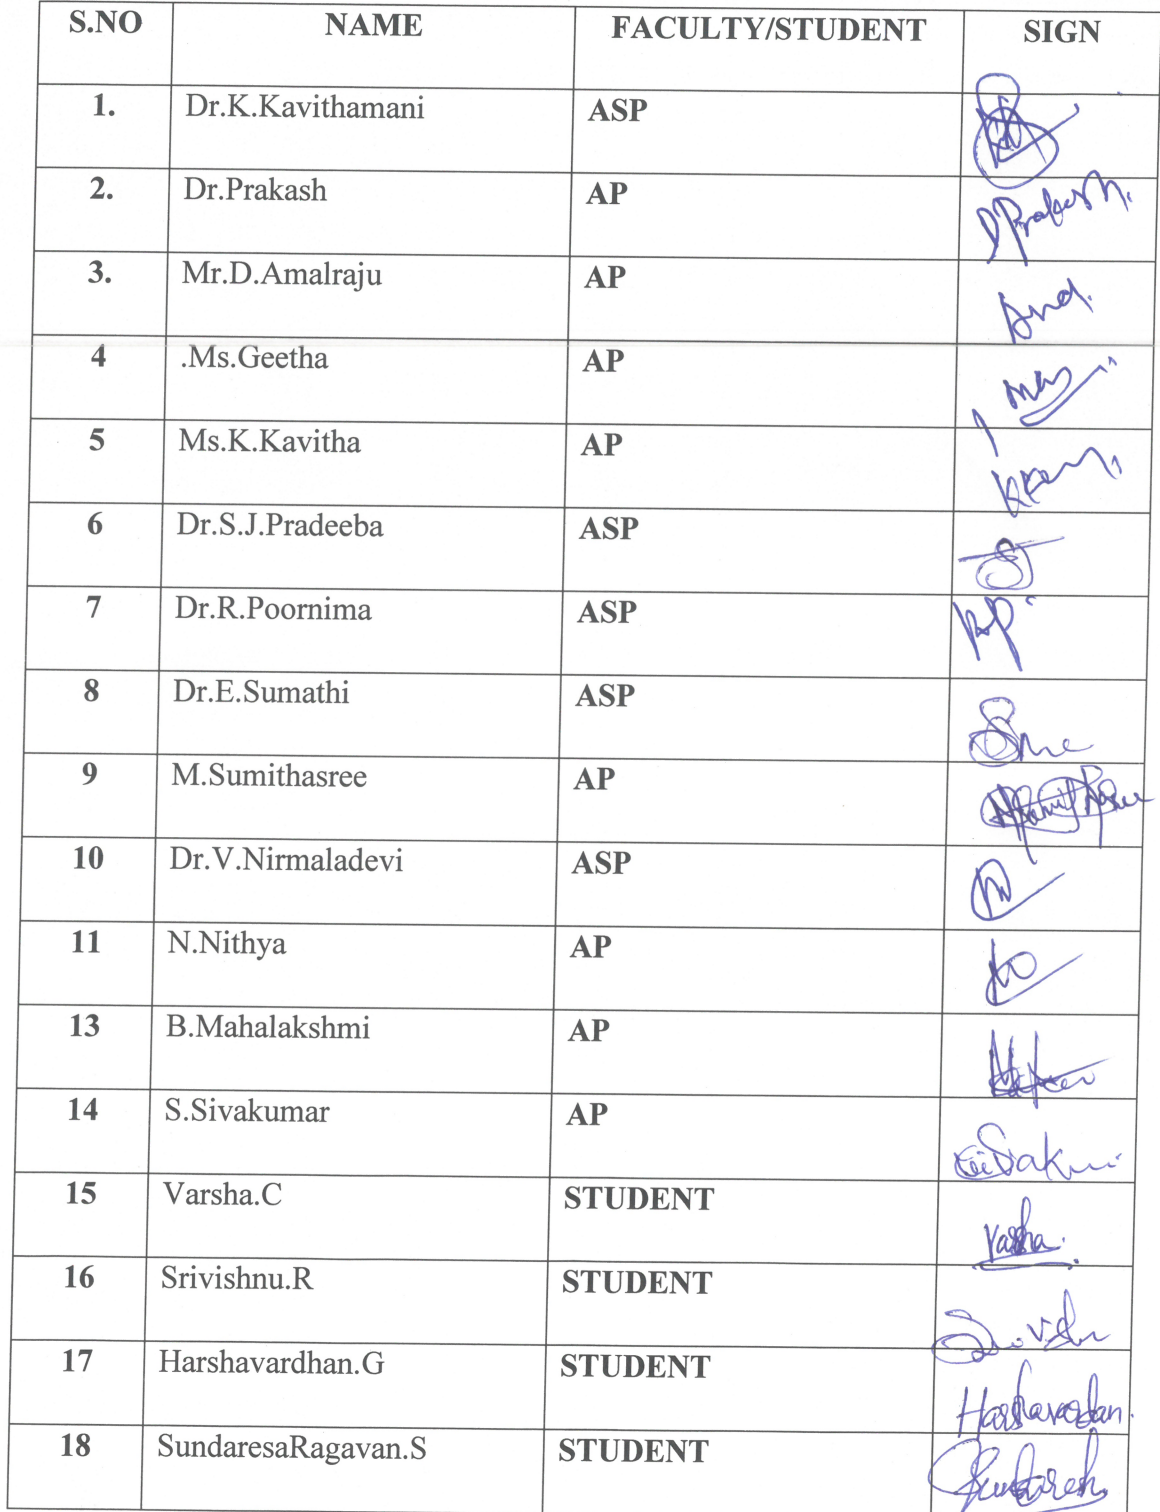 S.NO NAME FACULTY/STUDENT SIGN
1. Dr.K.Kavithamani ASP
2. Dr.Prakash AP D Prakash.
3. Mr.D.Amalraju AP
4 .Ms.Geetha AP
5 Ms.K.Kavitha AP
6 Dr.S.J.Pradeeba ASP
7 Dr.R.Poornima ASP
8 Dr.E.Sumathi ASP
9 M.Sumithasree AP
10 Dr.V.Nirmaladevi ASP
11 N.Nithya AP
13 B.Mahalakshmi AP
14 S.Sivakumar AP
15 Varsha.C STUDENT Varsha.
16 Srivishnu.R STUDENT
17 Harshavardhan.G STUDENT Harshavardan.
18 SundaresaRagavan.S STUDENT